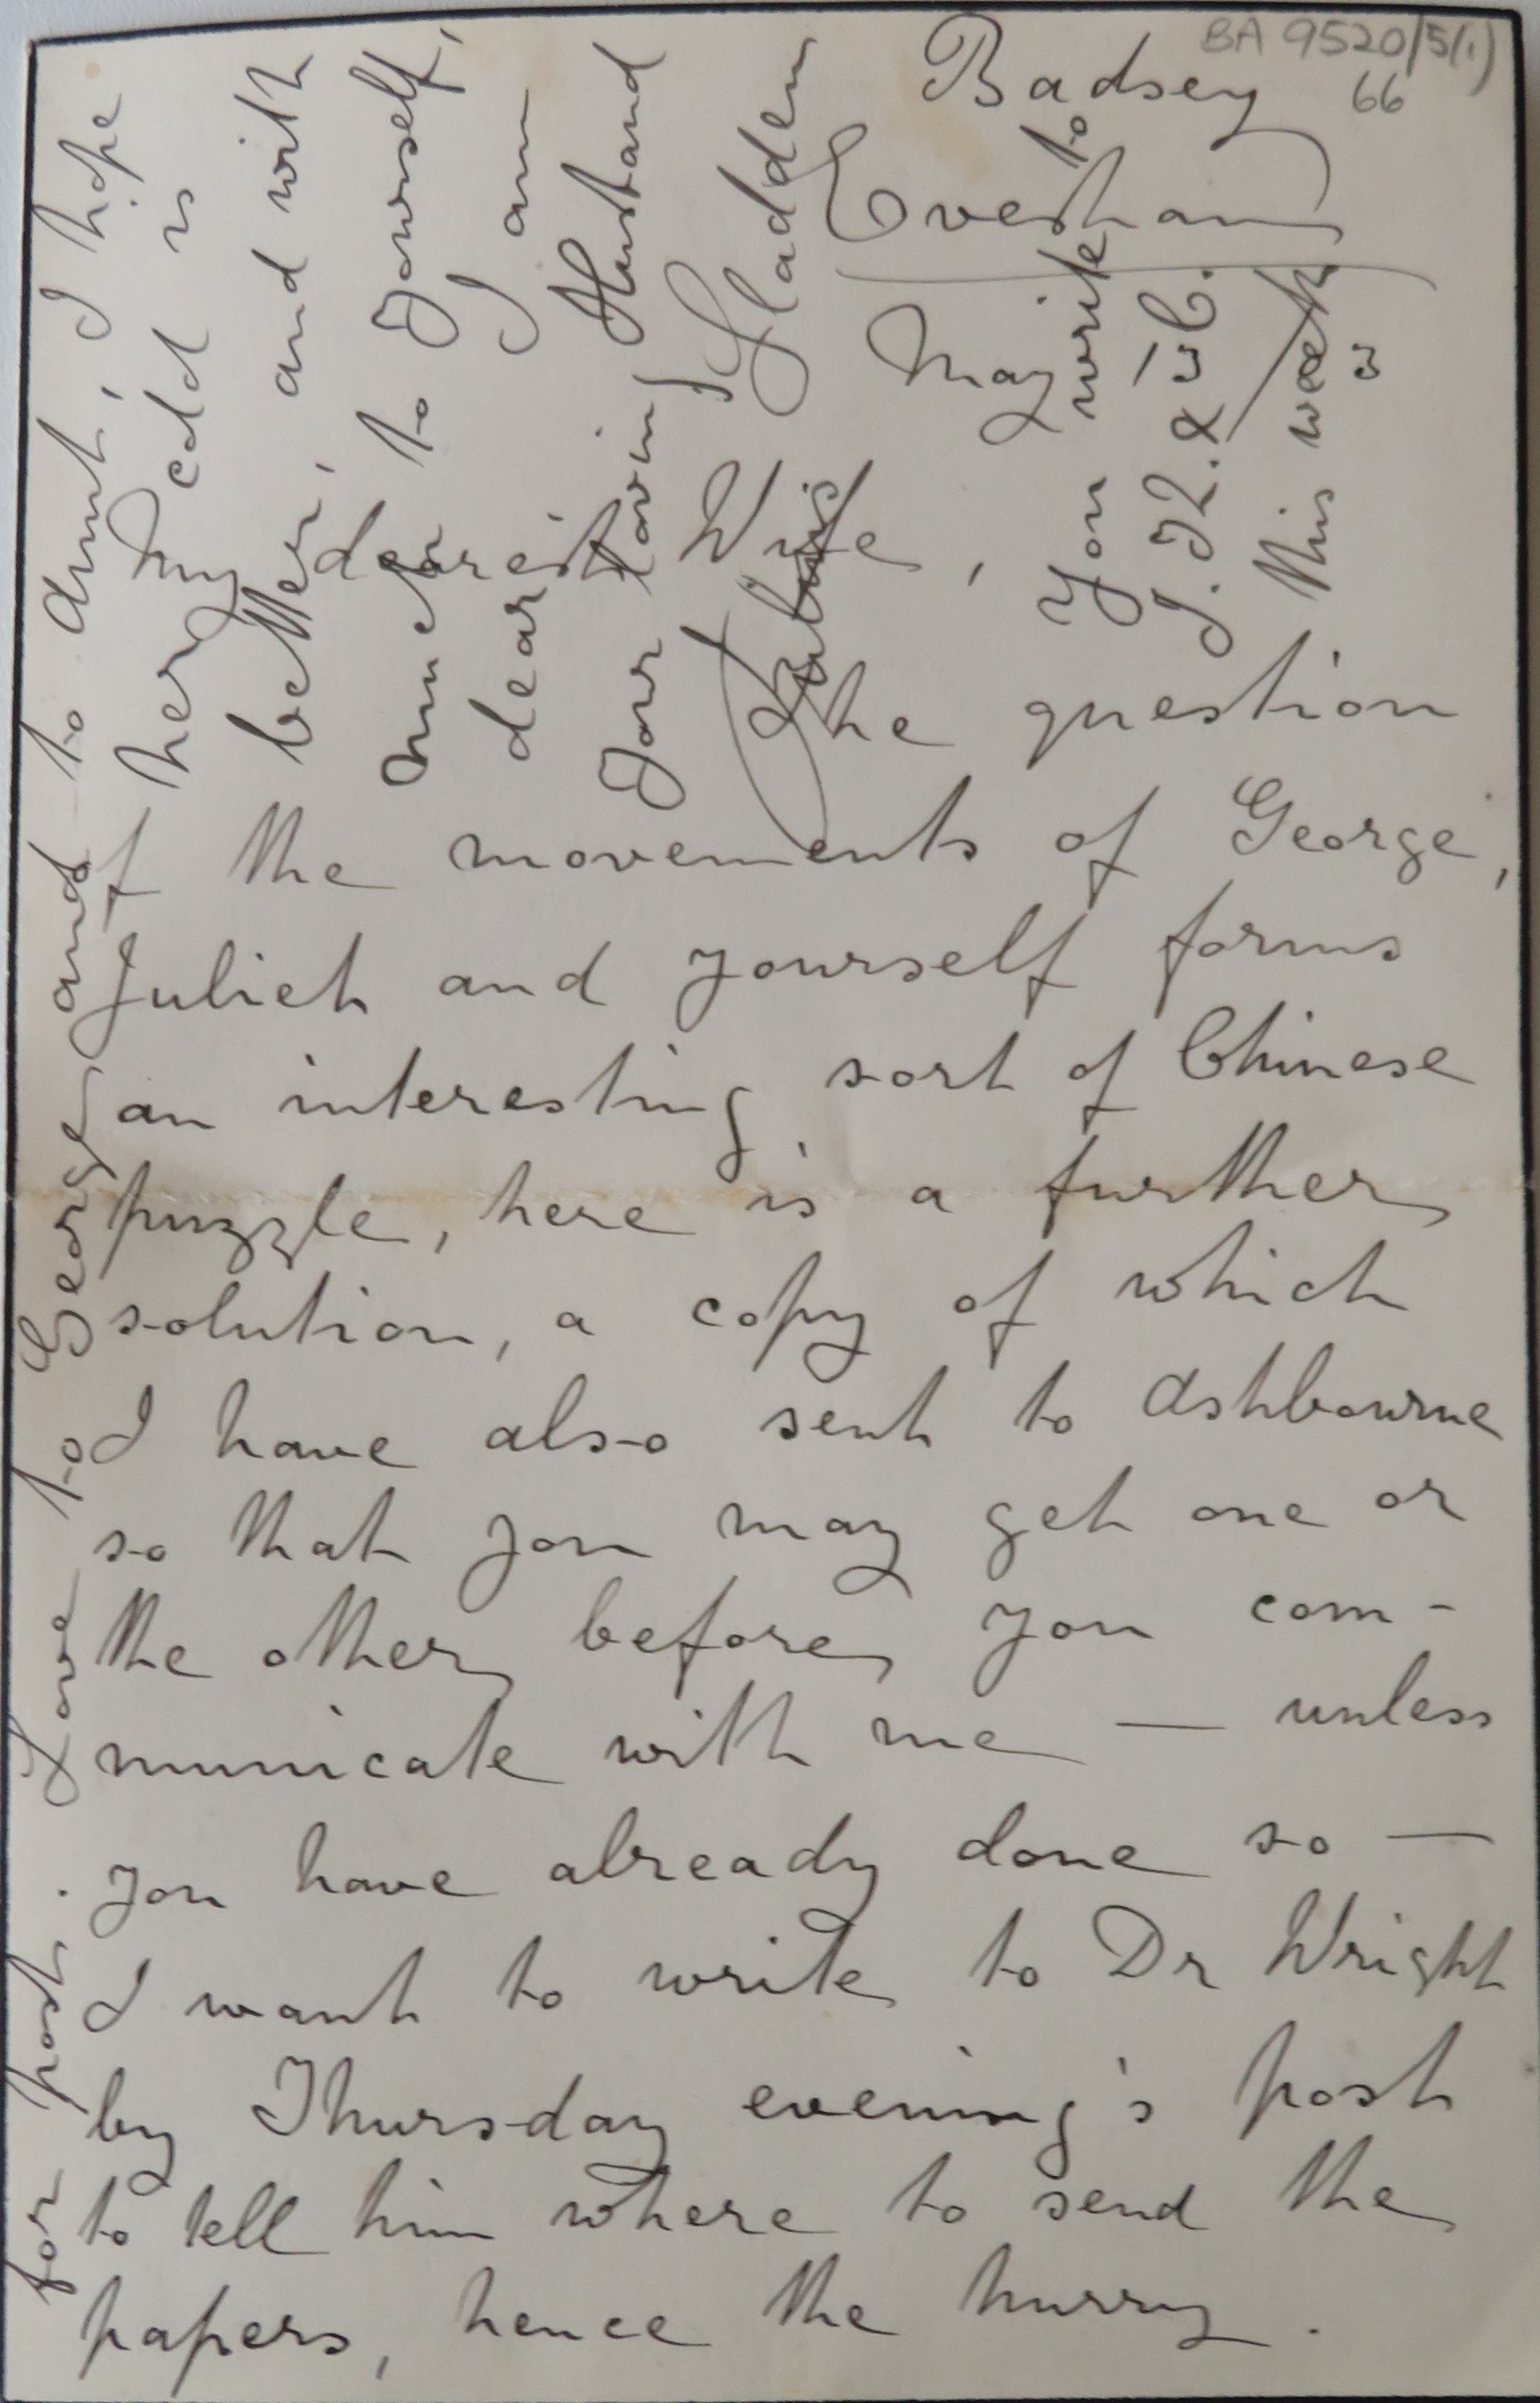 BA 9520/5(1)
66
Badsey
Evesham
May
My dearest Wife,
The question
of the movements of George,
Juliet and yourself forms
an interesting sort of Chinese
puzzle, here is a further
solution, a copy of which
I have also sent to Ashbourne
so that you may get one or
the other before you com-
municate with me — unless
you have already done so —
I want to write to Dr Wright
by Thursday evening's post
to tell him where to send the
papers, hence the hurry.
for post. Love to George and to Aunt, I hope
her cold is
better, and with
much to yourself,
dear I am
Your loving Husband
Julius Sladden
You write to
this week